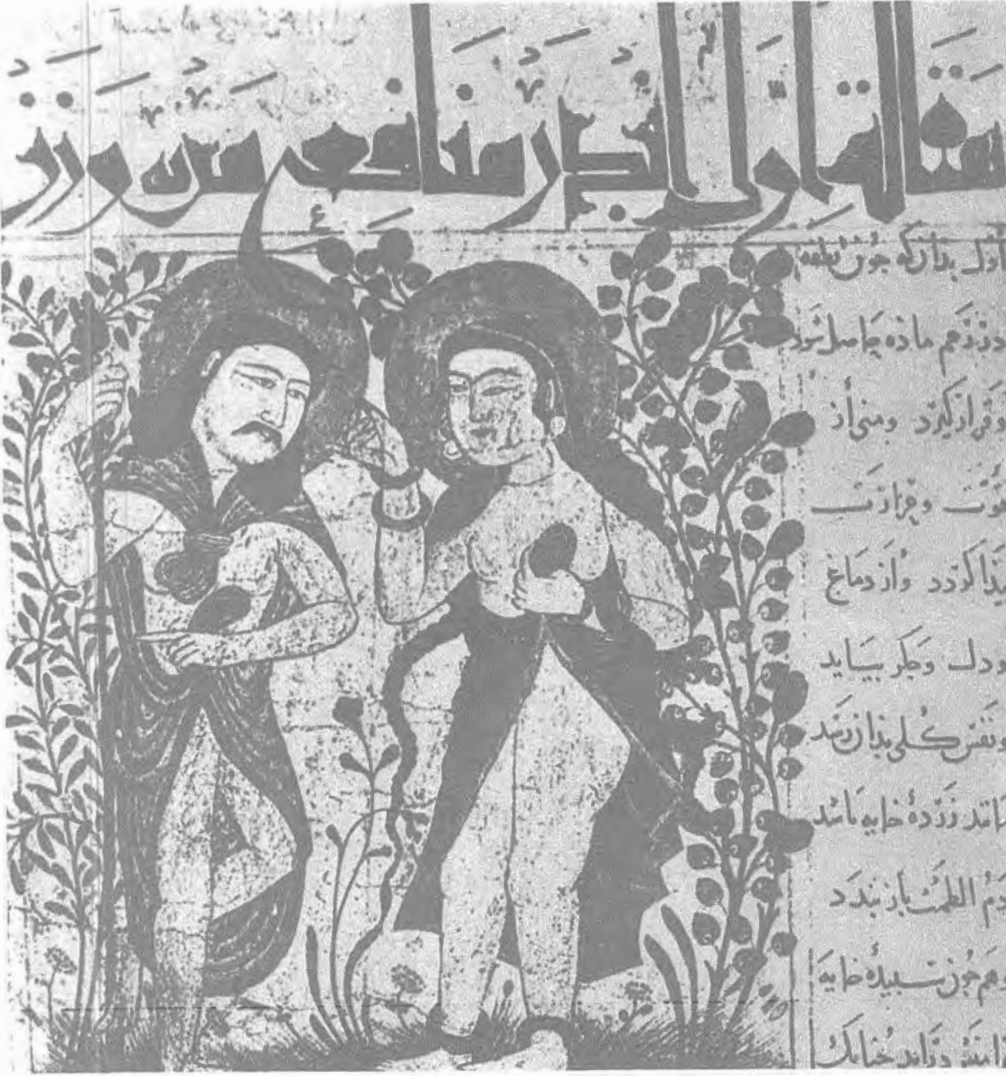 مقالة اول اندر منافع مردم و زن
اول بدانکه جون نطفه
در رحم ماده حاصل شود
و قرار کیرد و منی از
قوت و حرارت
بیدا کردد و از دماغ
و دل و جکر بیاید
و نفس کلی بدان رسد
مانند زردهٔ خایه باشد
دم الطمث باز بندد
هم جون سبیدهٔ خایه
دراید جنانک